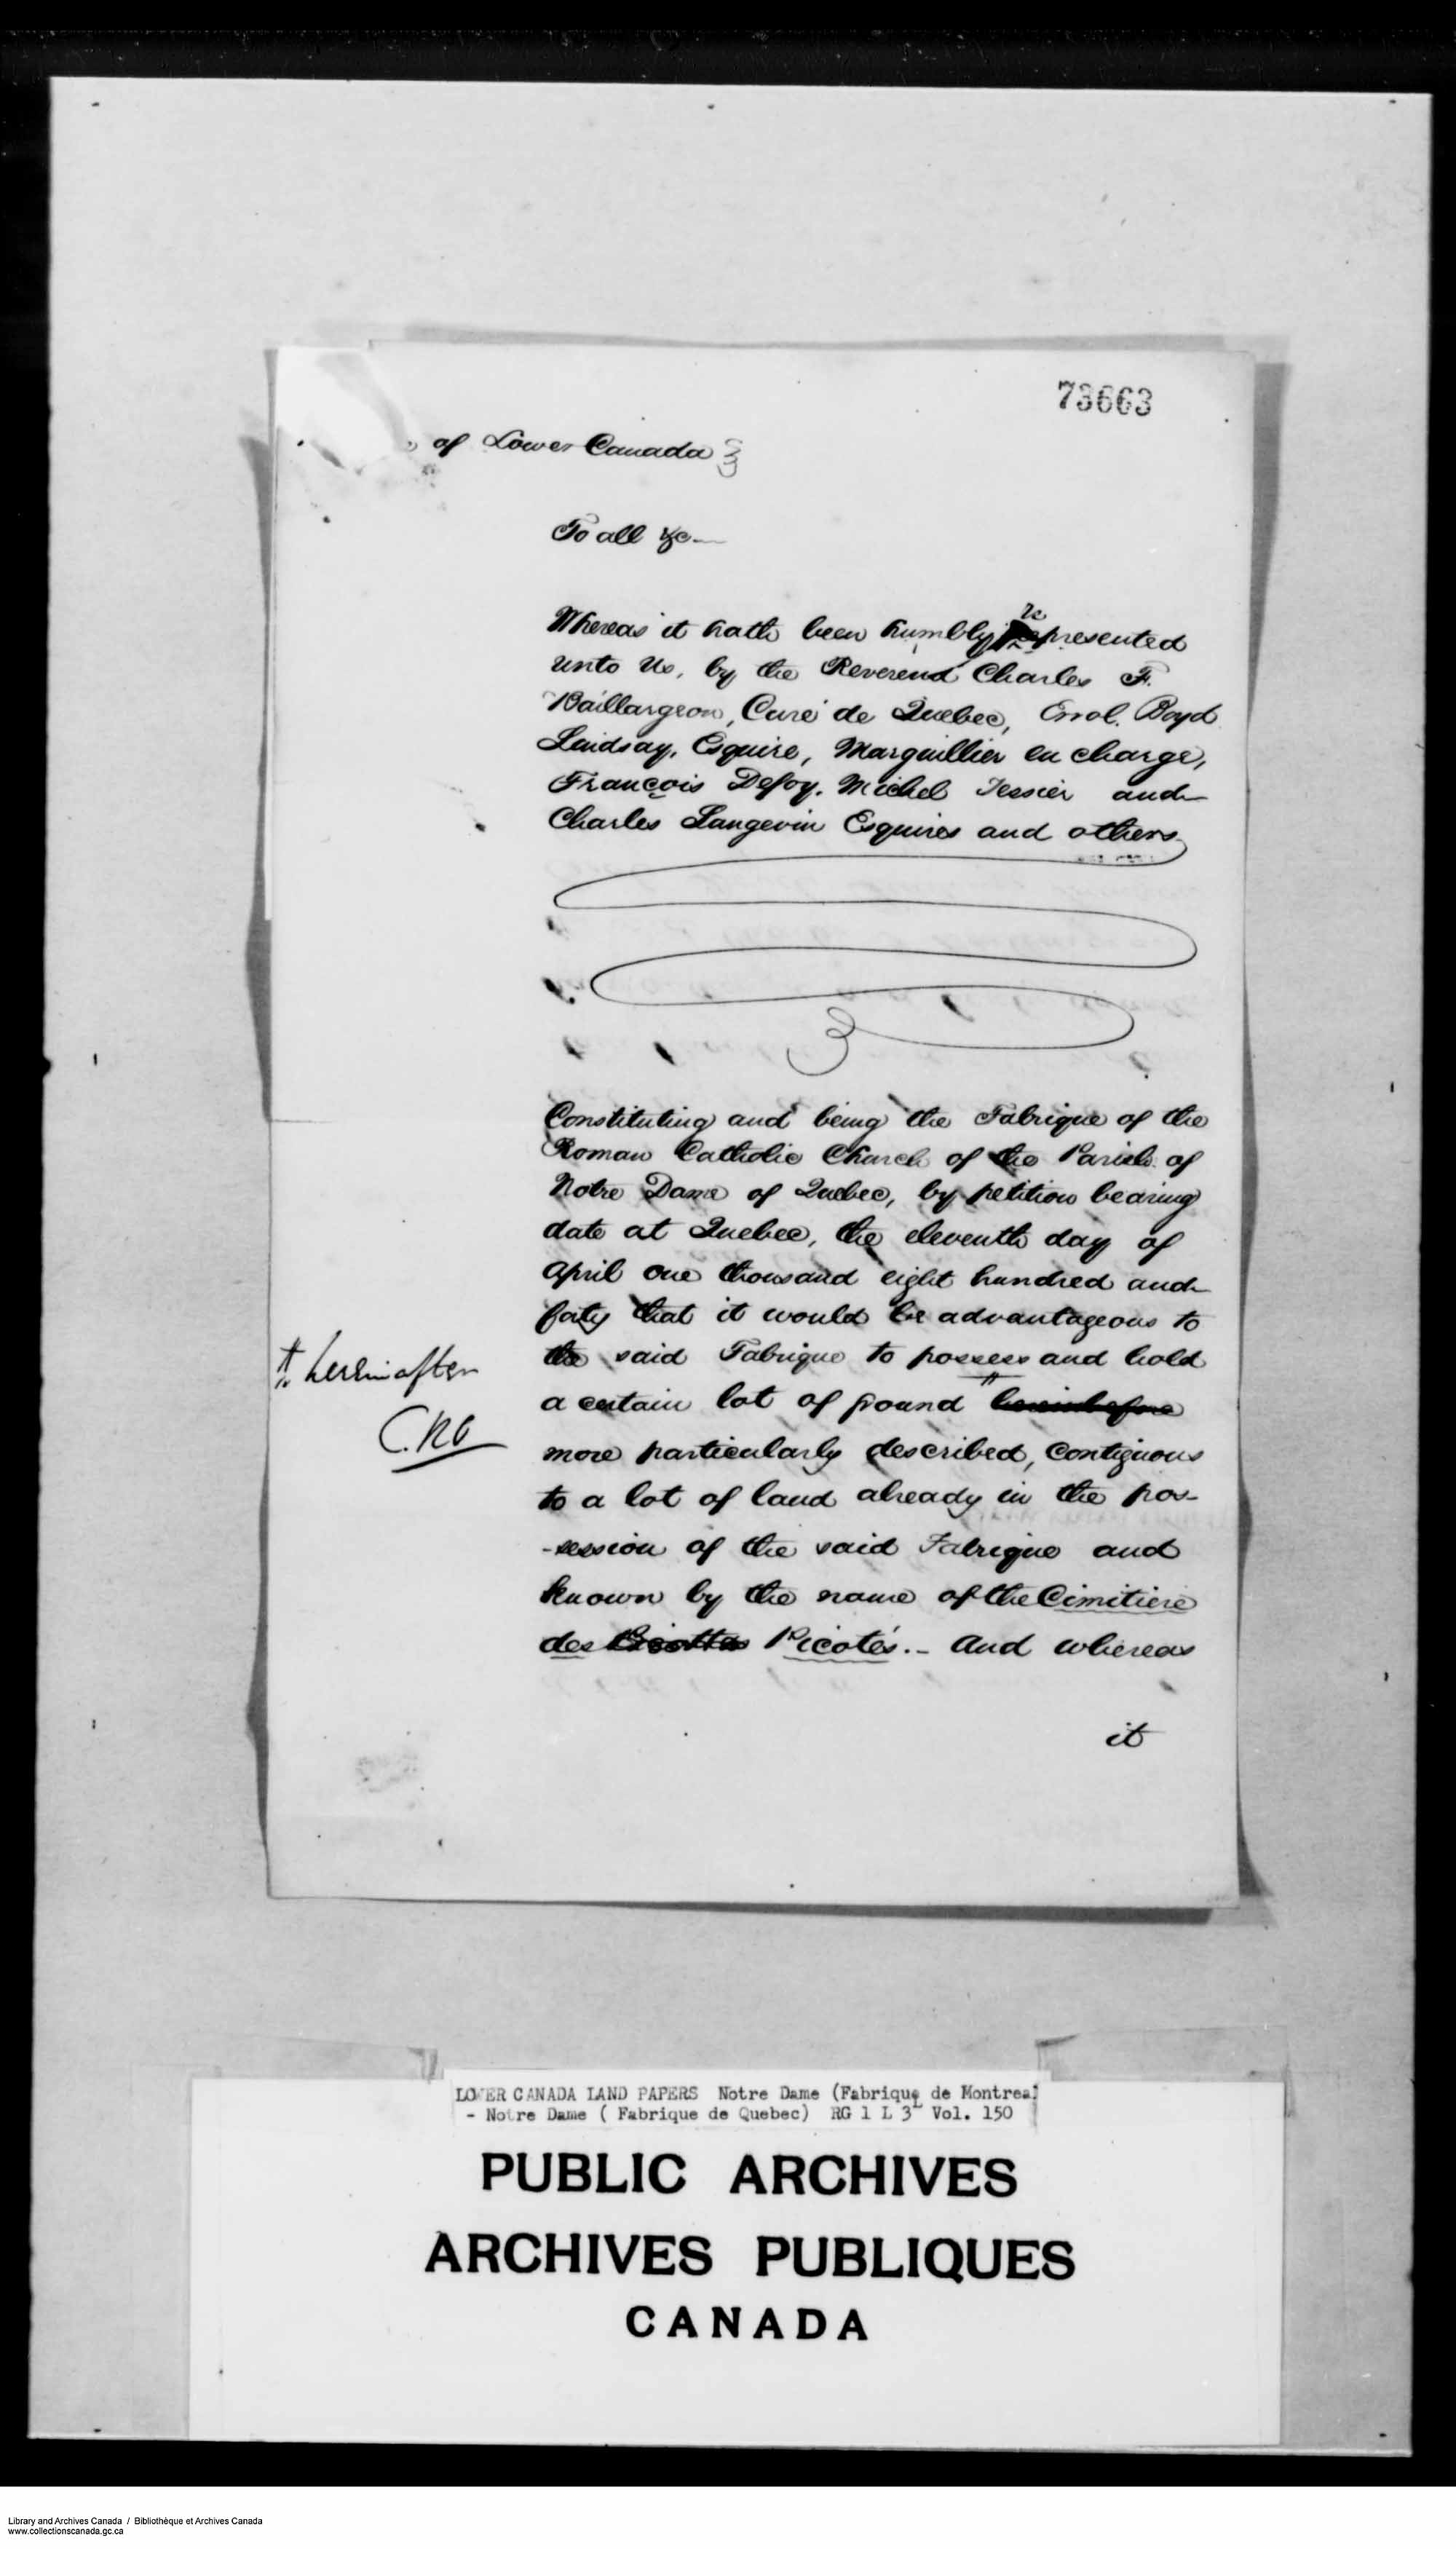 73663
of Lower Canada
To all &c
re
Whereas it hath been humbly represented
unto Us, by the Reverend Charles F.
Baillargeon, Curé de Quebec, Errol Boyd
Lindsay, Esquire, Marguillier en charge,
François Defoy, Michel Tessier and
Charles Langevin Esquires and others
Constituting and being the Fabrique of the
Roman Catholic Church of the Parish of
Notre Dame of Quebec, by petition bearing
date at Quebec, the eleventh day of
April one thousand eight hundred and
forty that it would be advantageous to
the said Fabrique to possess and hold
a certain lot of ground hereinbefore
hereinafter
C.RO
more particularly described, contiguous
to a lot of land already in the pos-
-session of the said Fabrique and
known by the name of the Cimitiere
des Picotés. - And whereas
it
LOWER CANADA LAND PAPERS Notre Dame (Fabrique de Montreal
- Notre Dame ( Fabrique de Quebec) RG 1 L 3L Vol. 150
PUBLIC ARCHIVES
ARCHIVES PUBLIQUES
CANADA
Library and Archives Canada / Bibliothèque et Archives Canada
www.collectionscanada.gc.ca